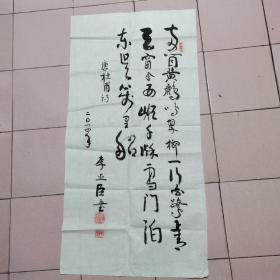 两个黄鹂鸣翠柳一行白鹭上青
天窗含西岭千秋雪门泊
东吴万里船
唐杜甫诗
二〇一四年
李亚臣书